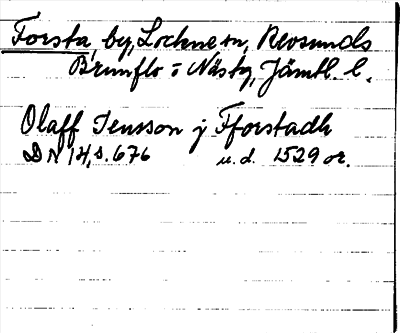 Forsta, by, Lockne sn, Revsunds
Brunflo o Näsby, Jämtl. l.
Olaff Jensson j Fforstadh
DN 14, s. 676 u. d. 1529 or.